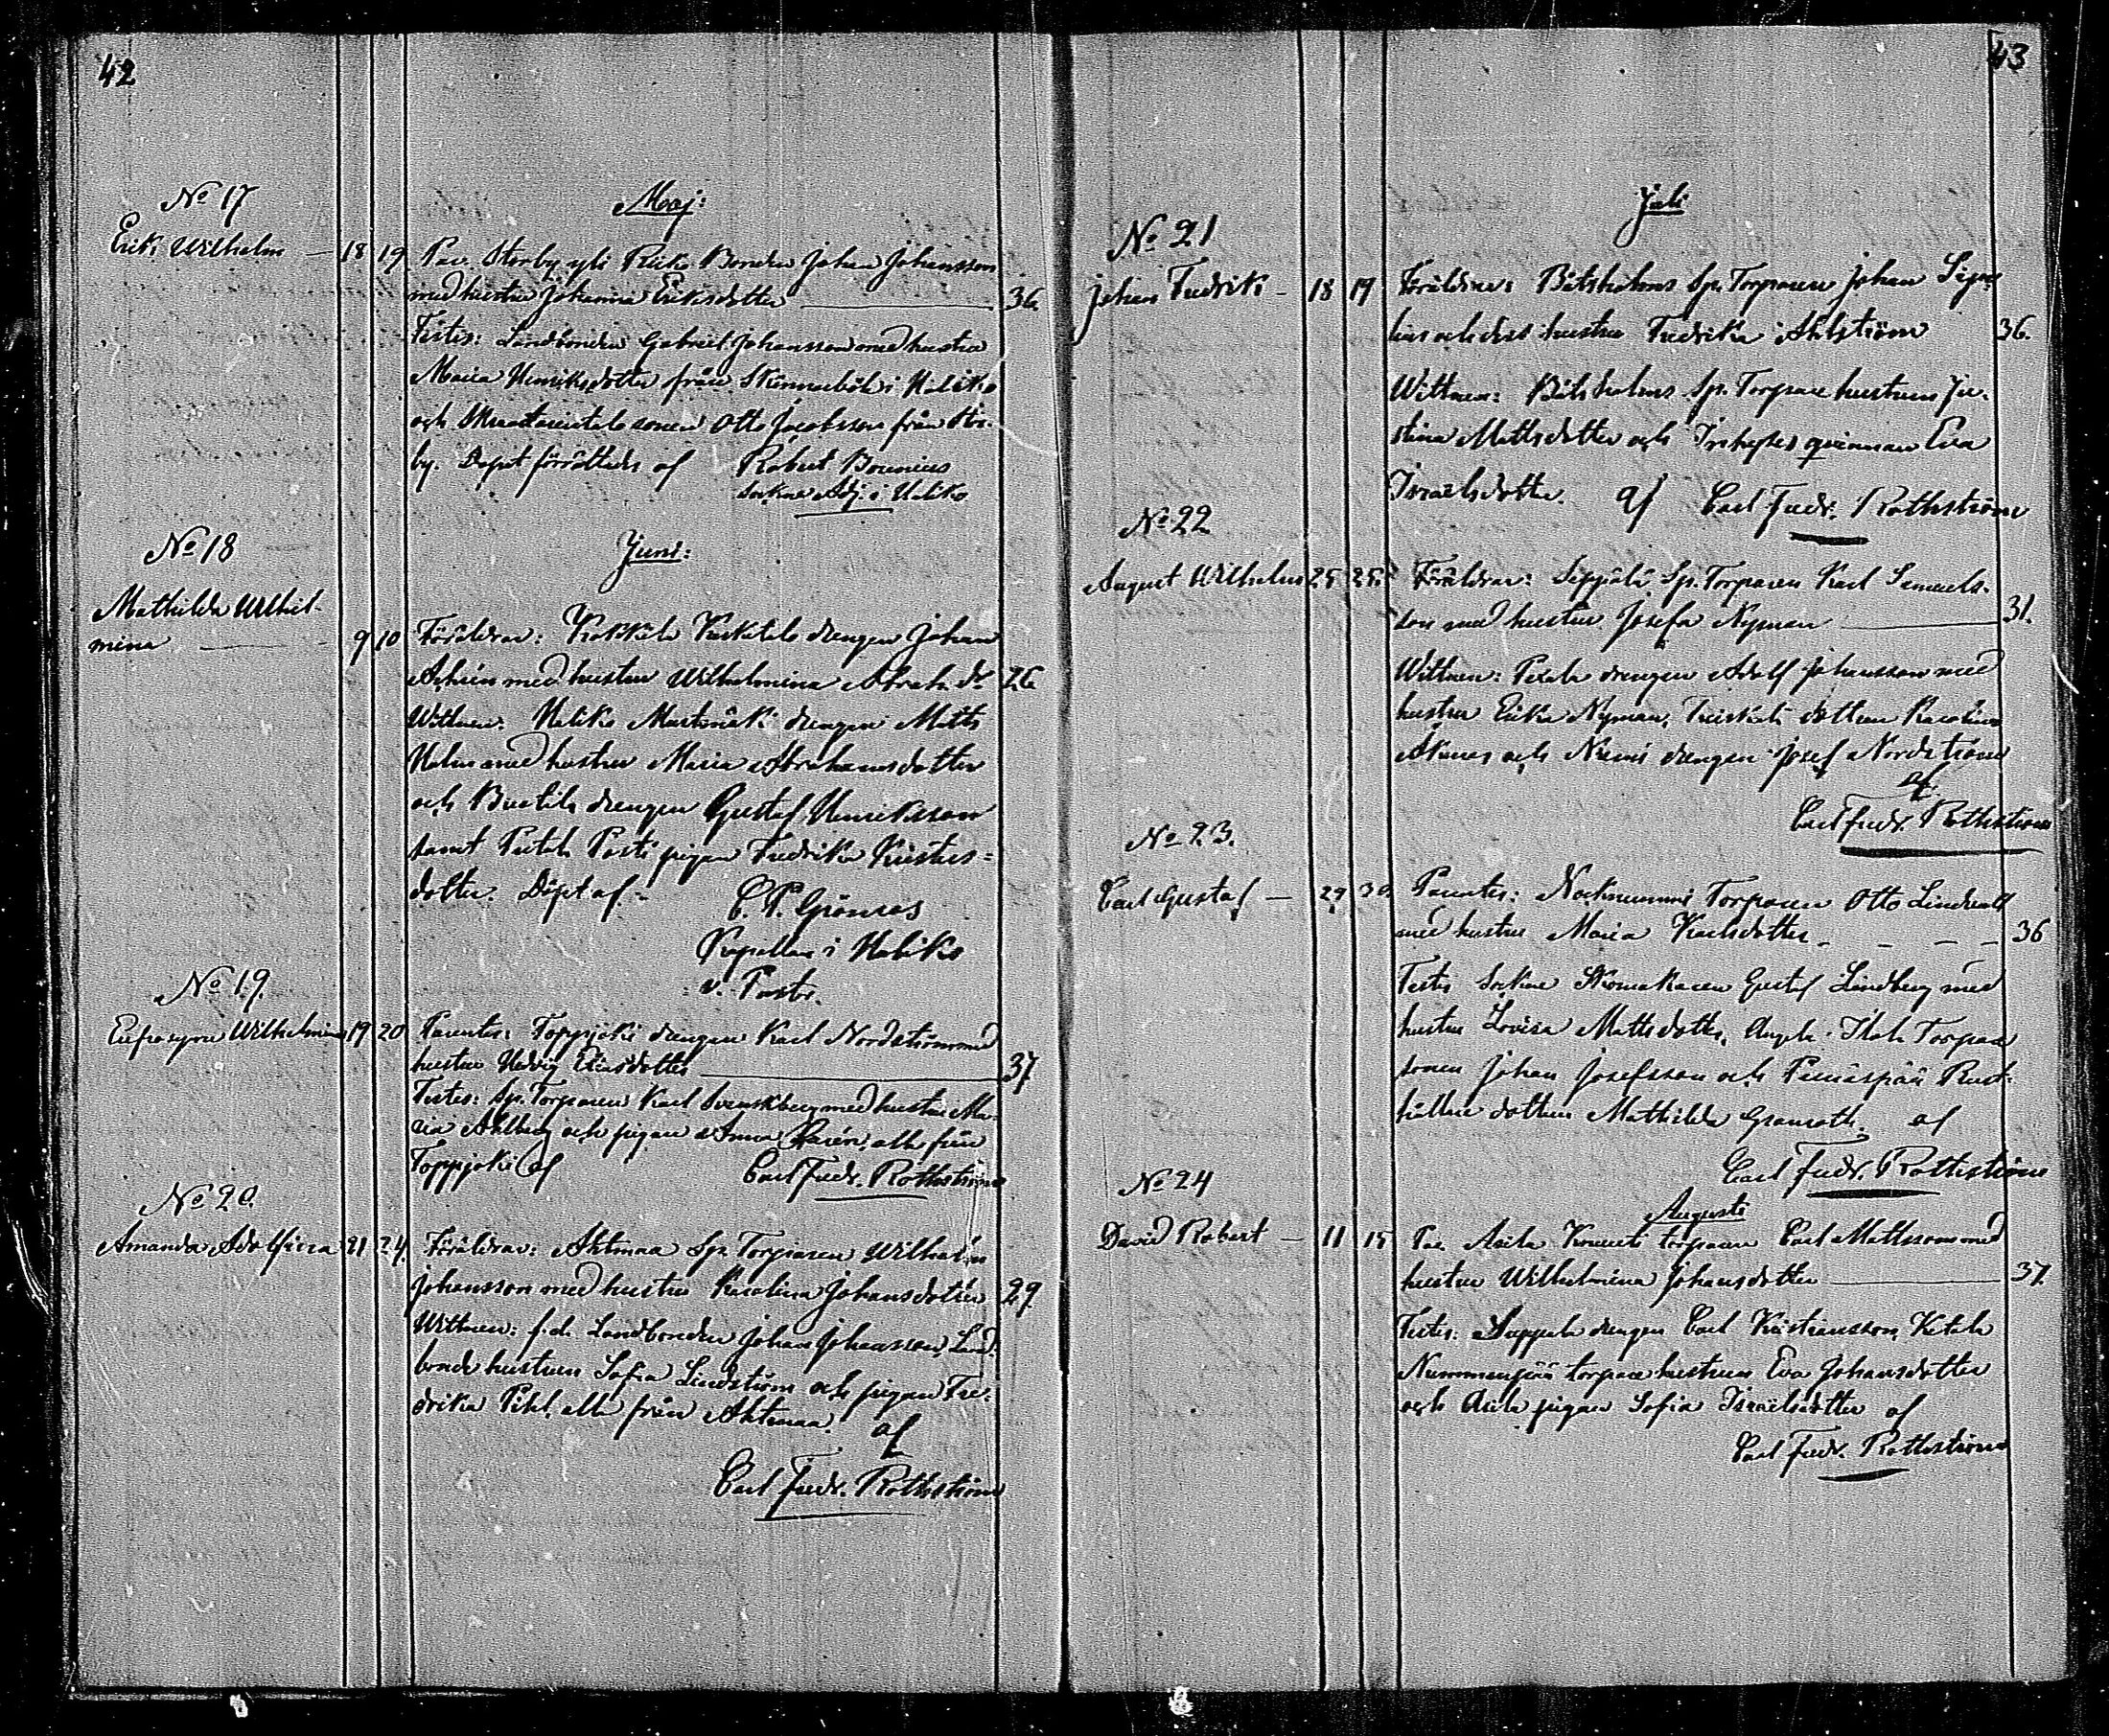 42
No 17
Maj:
Erik Wilhelm — 18 19 Par. Storby yli Riiko Bonden Johan Johansson
med hustru Johanna Eriksdotter — 36.
Testes: Landbonden Gabriel Johansson med hustru
Maria Henriksdotter från i Haliko
och sonen Otto Jacobsson från Stor-
by. Dopet förrättades af Robert Bonnius
Sockne Adj. i Haliko
No 18
Juni:
Mathilda Wilhel-
mina — 9 10 Föräldrar: drengen Johan
med hustru Wilhelmina Abrah. dr 26
Wittnen: Haliko drengen Matts
Holm med hustru Maria Abrahamsdotter
och drengen Gustaf Henriksson
samt Posti pigan Fredrika
dotter. Döpt af C. P. Grönroos
Kapellan i Haliko
v. Pastor.
No 19.
Eufrosyne Wilhelmina 19 20 Parentes: Toppjoki drengen Karl Nordström med
hustru Hedvig Eliasdotter — 37
Testes: Sp. Torparen Karl Svenskberg med hustru Ma-
ria Ahlberg och pigan Anna alla från
Toppjoki af Carl Fredr. Rothström
No 20.
Amanda Adolfina 21 24. Föräldrar: Ahtmaa Sp. Torparen Wilhelm
Johansson med hustru Karolina Johansdotter 29.
Wittnen: f.d. Landbonden Johan Johansson, Land-
bonde hustrun Sofia Lindström och pigan Fre-
drika Pihl, alla från Ahtmaa. af
Carl Fredr. Rothström
43
Juli
No 21
Johan Fredrik — 18 19 Föräldrar: Båtsholms Sp. Torparen Johan
och dess hustru Fredrika Ahlström 36.
Wittnen: Båtsholms Sp. Torpare hustrun Ju-
stina Mattsdotter och Inhyses qvinnan Eva
Israelsdotter. af Carl Fredr. Rothström
No 22
August Wilhelm 25 25. Föräldrar: Seppälä Sp. Torparen Karl Samuels-
son med hustru Josefa Nyman — 31.
Wittnen: drengen Adolf Johansson med
hustru Erika Nyman, dottren Karolina
och Niemi drengen Josef Nordström
af
Carl Fredr. Rothström
No 23.
Carl Gustaf — 29 30. Parentes: Nokinummi Torparen Otto Lindvall
med hustru Maria Karlsdotter — 36
Testes Sockne Skomakaren Gustaf Lindberg med
hustru Lovisa Mattsdotter, Torpare
sonen Johan Josefsson och Rust-
hållare dottren Mathilda Granroth. af
Carl Fredr. Rothström
No 24
Augusti
David Robert — 11 15 Par. Asila torparen Carl Mattsson med
hustru Wilhelmina Johansdotter — 37.
Testes: drengen Carl Kristiansson, Ketala
Nummenpää torpare hustrun Eva Johansdotter
och Asila pigan Sofia Israelsdotter af
Carl Fredr. Rothström